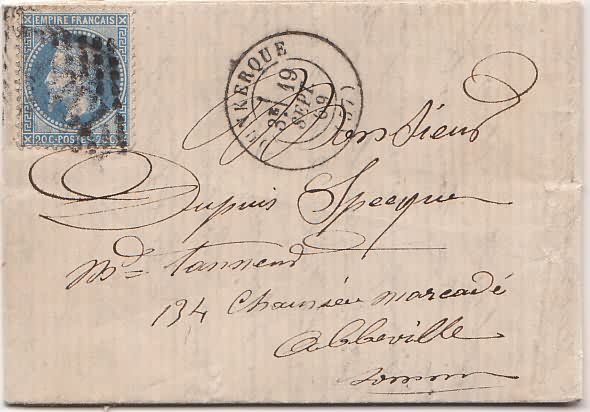 EMPIRE FRANCAIS
20 C-POSTES-20 C
DUNKERQUE
3E
19
SEPT
69
Monsieur
Dupuis Specque
Md tanneur
134 Chaussée marcadé
Abbeville
Somme